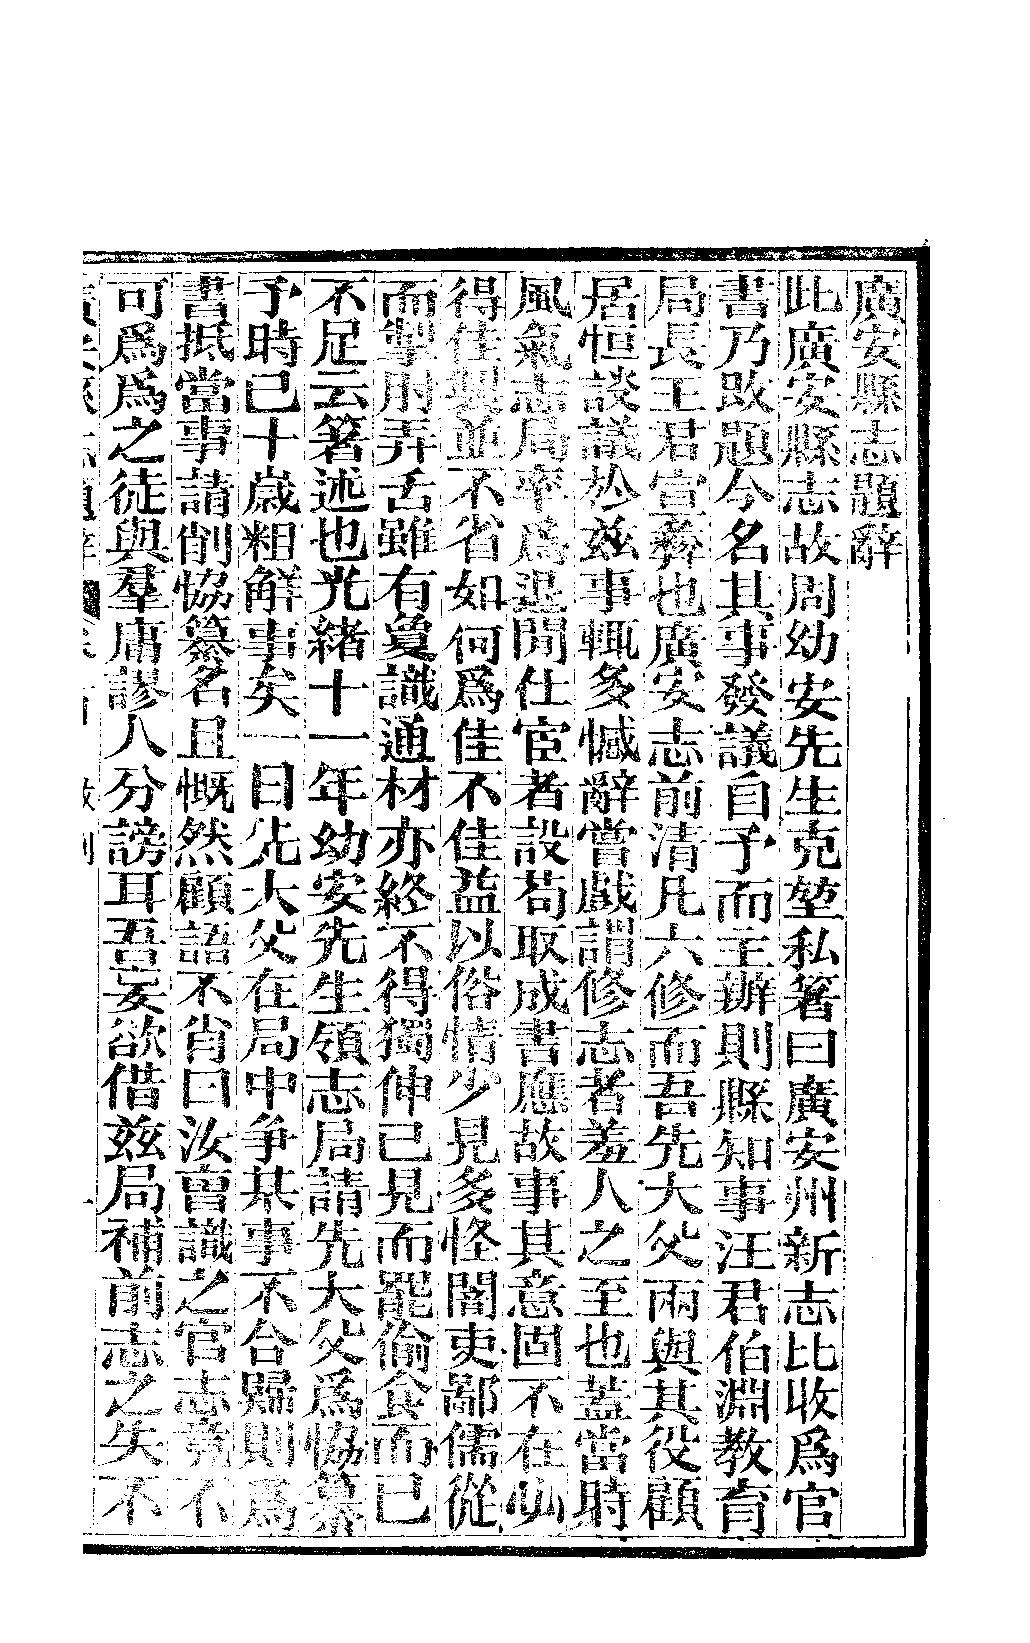 廣安縣志題辭
此廣安縣志故周幼安先生克堃私箸曰廣安州新志比收爲官
書乃改題今名其事發議自予而主辦則縣知事汪君伯淵教育
局長王君宣彝也廣安志前清凡六修而吾先大父兩與其役顧
居恒談議於兹事輒多憾辭嘗戲謂修志者羞人之至也蓋當時
風氣志局率爲退閒仕宦者設苟取成書應故事其意固不在必
得佳製並不省如何爲佳不佳益以俗情少見多怪闇吏鄙儒從
而掣肘弄舌雖有夐識通材亦終不得獨伸已見而罷偷食而已
不足云箸述也光緒十一年幼安先生領志局請先大父爲協纂
予時已十歲粗解事矣一日先大父在局中爭某事不合歸則爲
書抵當事請削協纂名且慨然顧語不肖曰汝曾識之官志竟不
可爲爲之徒與羣庸謬人分謗耳吾妄欲借兹局補前志之失不